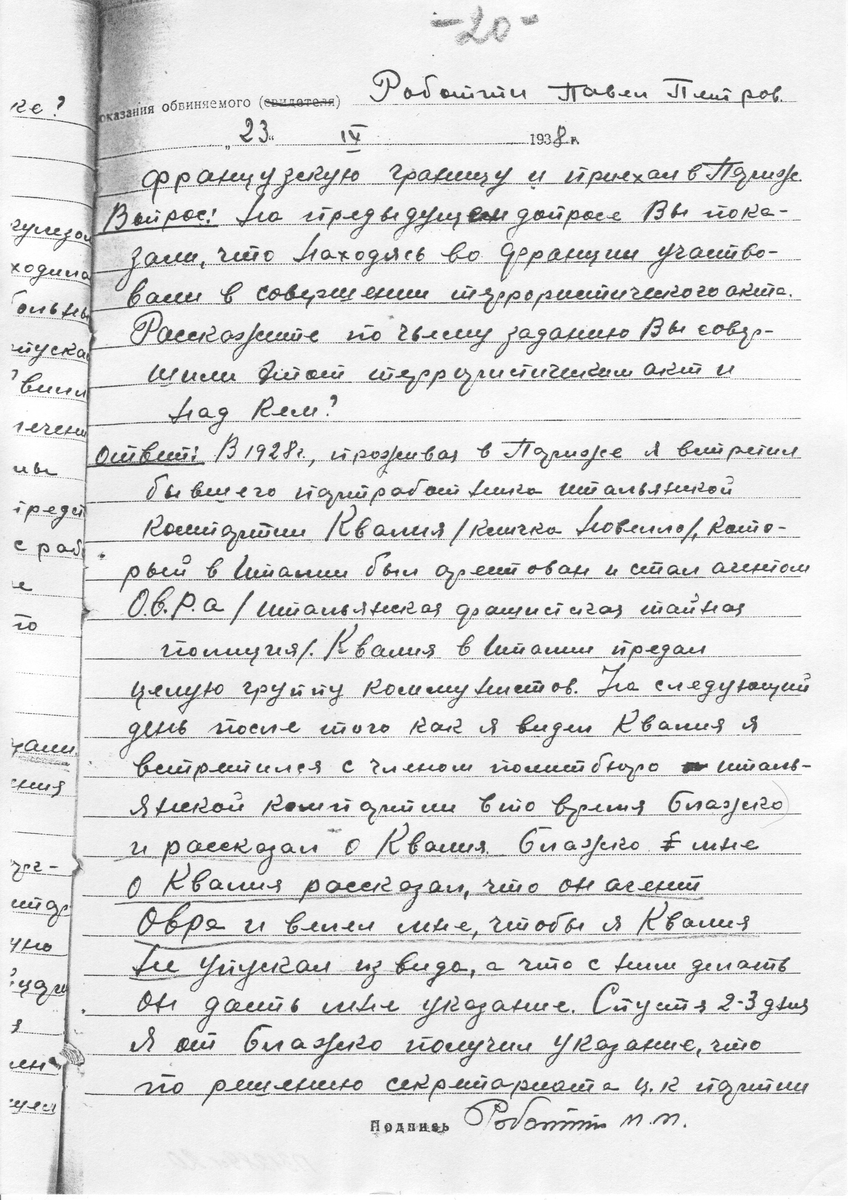 -20-
оказания обвиняемого (свидетеля) Роботти Павел Петров.
„23“ IV 1938 г.
французскую границу и приехал в Париж.
Вопрос: На предыдущем допросе Вы пока-
зали, что находясь во Франции участво-
вали в совершении террористического акта.
Расскажите по чьему заданию Вы совер-
шили этот террористическим акт и
над кем?
Ответ: В 1928 г., проживая в Париже я встретил
бывшего партработника итальянской
компартии Квалия /кличка Новелло/, кото-
рый в Италии был арестован и стал агентом
О.в.Р.а /итальянская фашистская тайная
полиция/. Квалия в Италии предал
целую группу коммунистов. На следующий
день после того как я видел Квалия я
встретился с членом политбюро италь-
янской компартии в то время Блажко
и рассказал о Квалия. Блажко мне
о Квалия рассказал, что он агент
Овра и велел мне, чтобы я Квалия
не упускал из вида, а что с ним делать
он дасть мне указание. Спустя 2-3 дня
я от Блажко получил указание, что
по решению секретариата ц.к партии
Подпись Роботти П.П.
ке?
ходила
пуска
лечени
предст
с раб
е
то
ения
уно
я